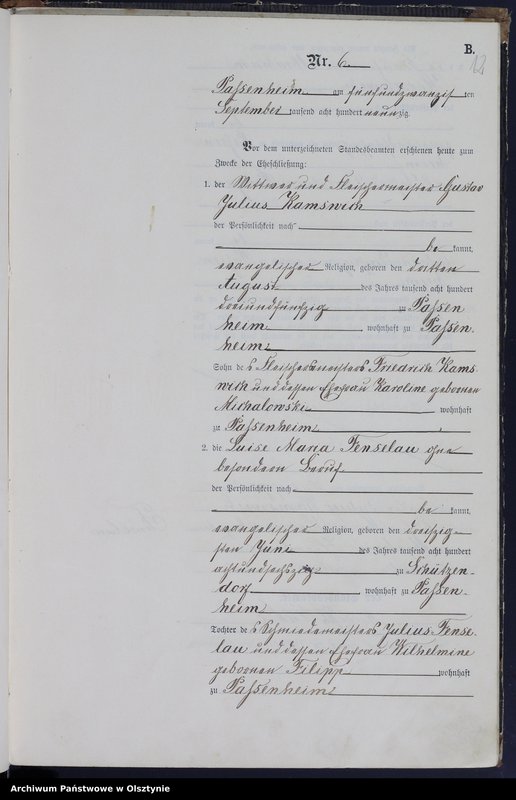 B.
12
Nr. 6.
Passenheim am fünfundzwanzigsten
September tausend acht hundert neunzig.
Vor dem unterzeichneten Standesbeamten erschienen heute zum
Zwecke der Eheschließung:
1. der Wittwer und Fleischermeister Gustav
Julius Kamswich
der Persönlichkeit nach
be kannt,
evangelischer Religion, geboren den dritten
August des Jahres tausend acht hundert
dreiundfünfzig zu Passen
heim, wohnhaft zu Passen-
heim
Sohn des Fleischermeisters Friedrich Kams
wich und dessen Ehefrau Karoline geborenen
Michalowski wohnhaft
zu Passenheim
2. die Luise Maria Fenselau ohne
besondern Beruf
der Persönlichkeit nach
be kannt,
evangelischer Religion, geboren den dreißig-
sten Juni des Jahres tausend acht hundert
achtundsechszig zu Schützen-
dorf, wohnhaft zu Passen-
heim
Tochter des Schmiedemeisters Julius Fense-
lau und dessen Ehefrau Wilhelmine
geborenen Filipp wohnhaft
zu Passenheim
Archiwum Państwowe w Olsztynie